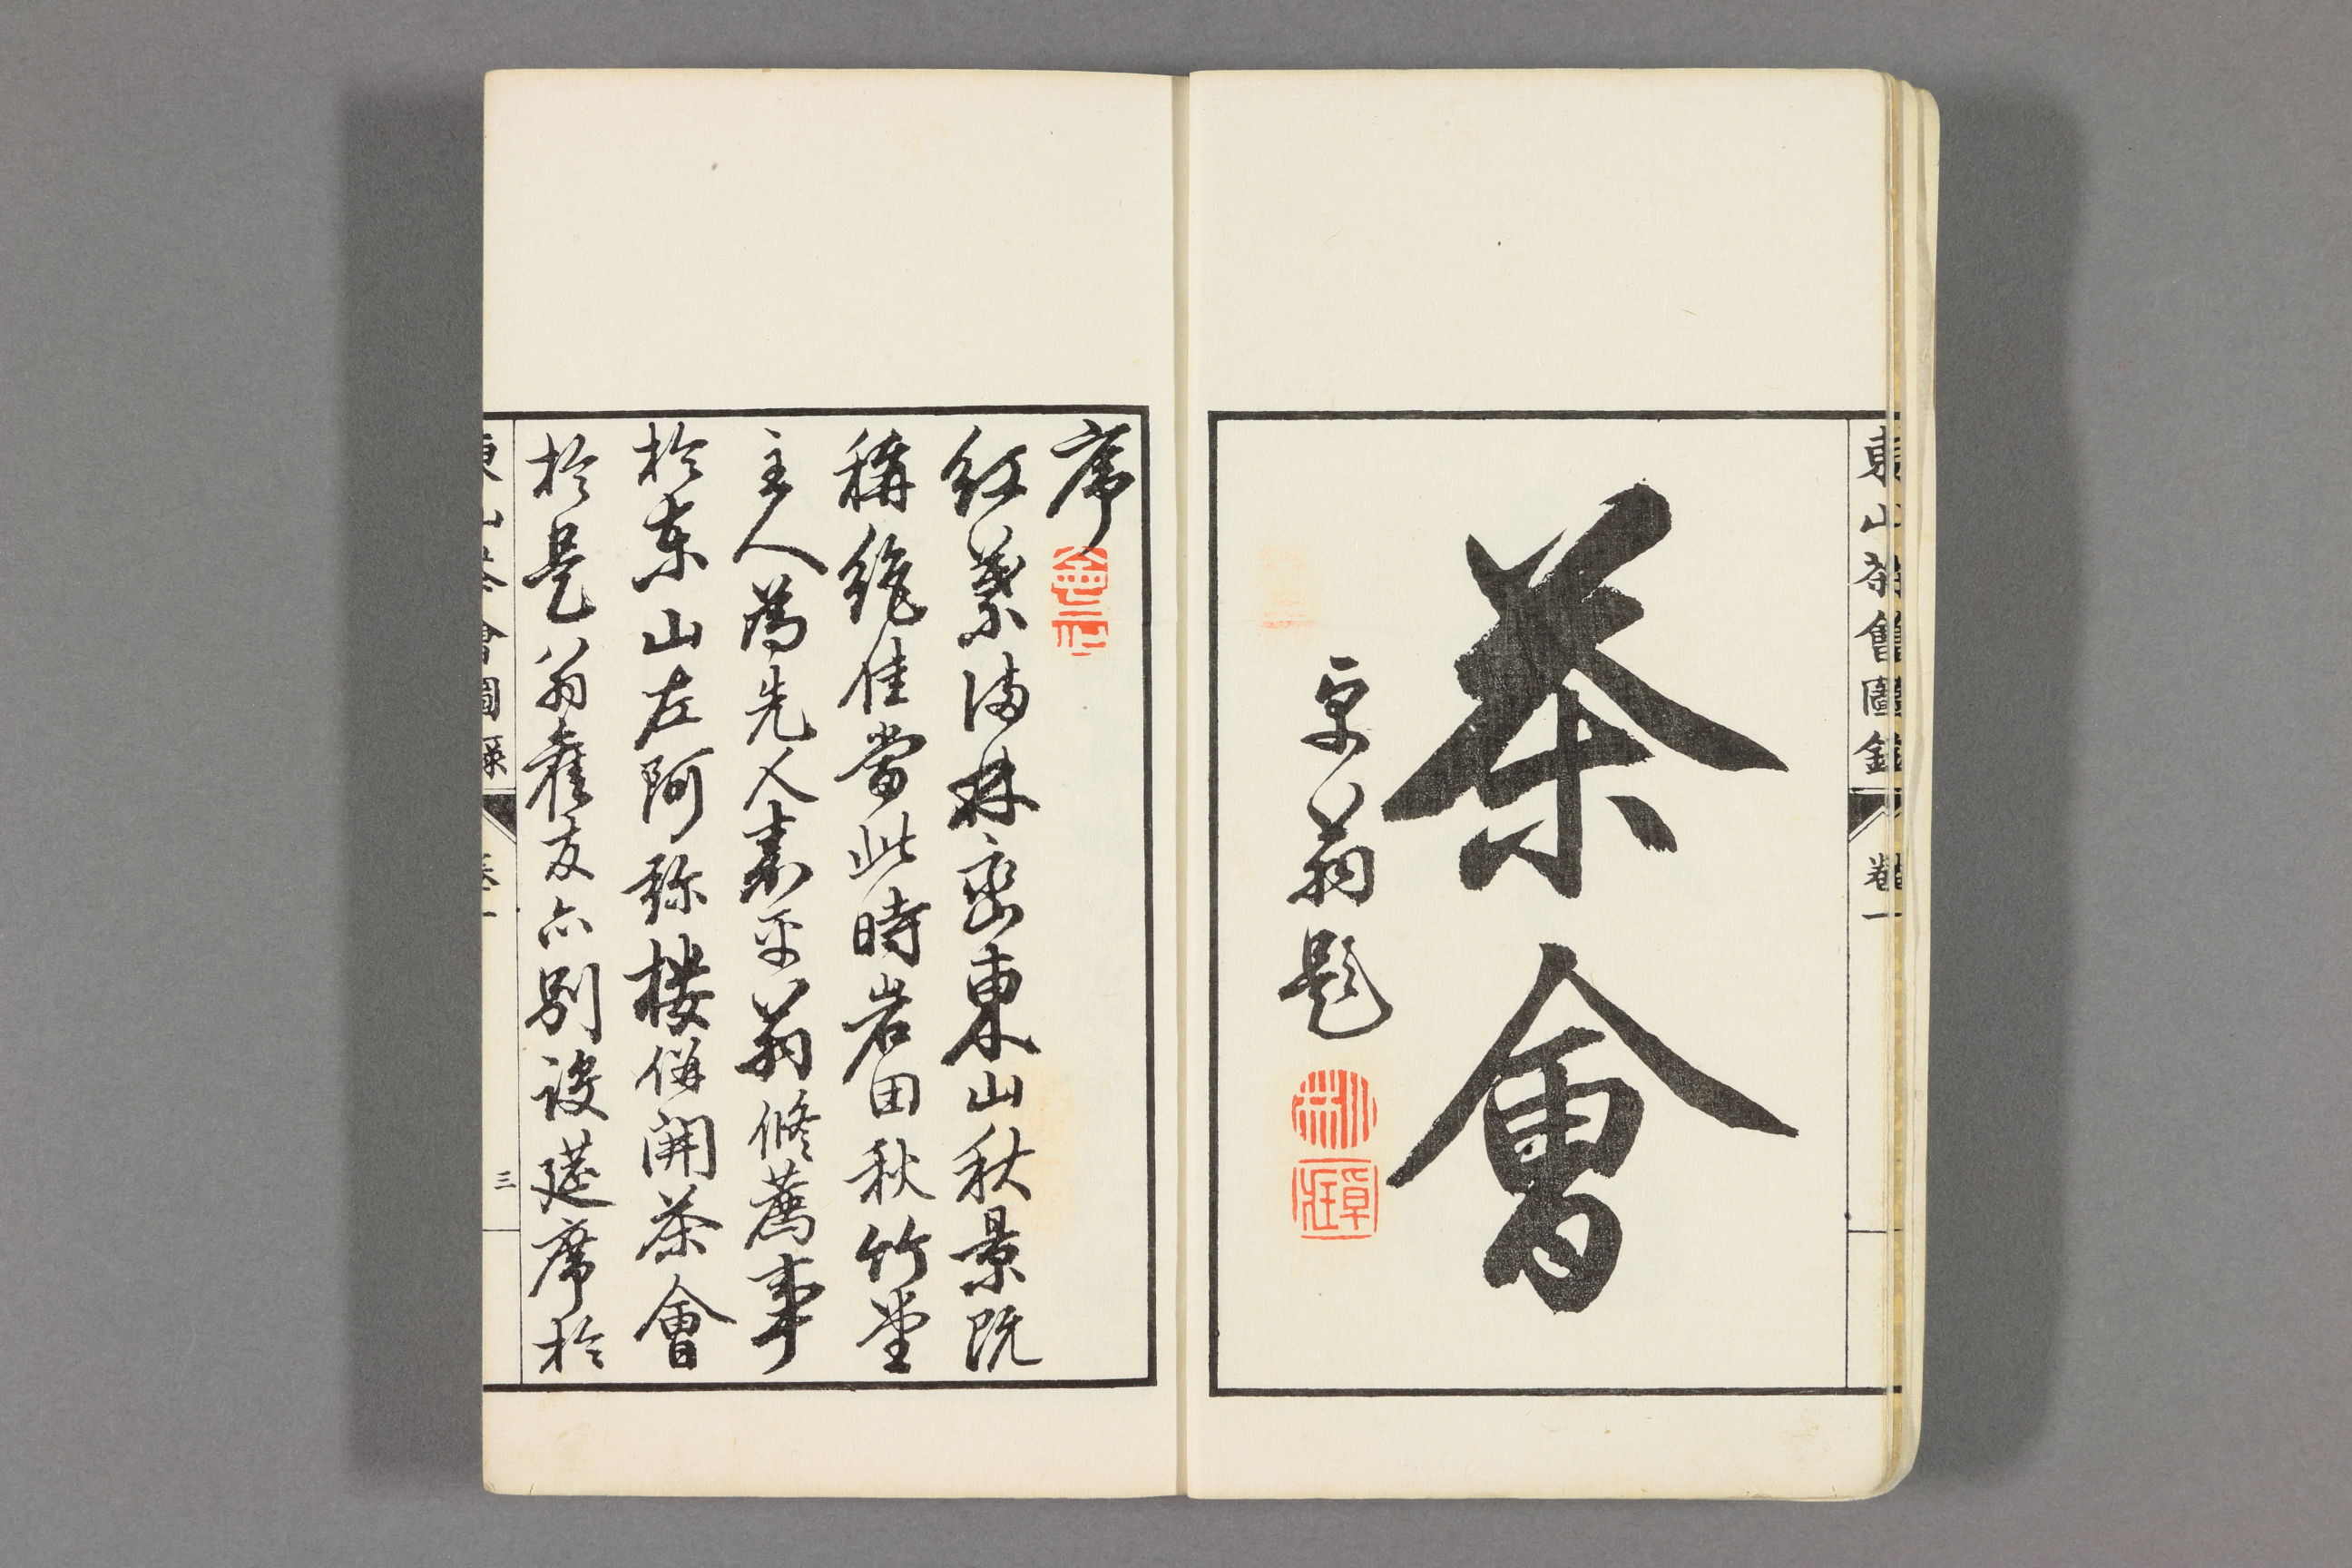 東山茶會圖錄
卷一
茶會
翁題
序
紅葉滿林巒東山秋景既
稱絕佳當此時岩田秋竹堂
主人為先人素平翁修薦事
於東山左阿弥楼併開茶會
於是翁舊友亦別設筵席於
東山茶會圖録
卷一
三